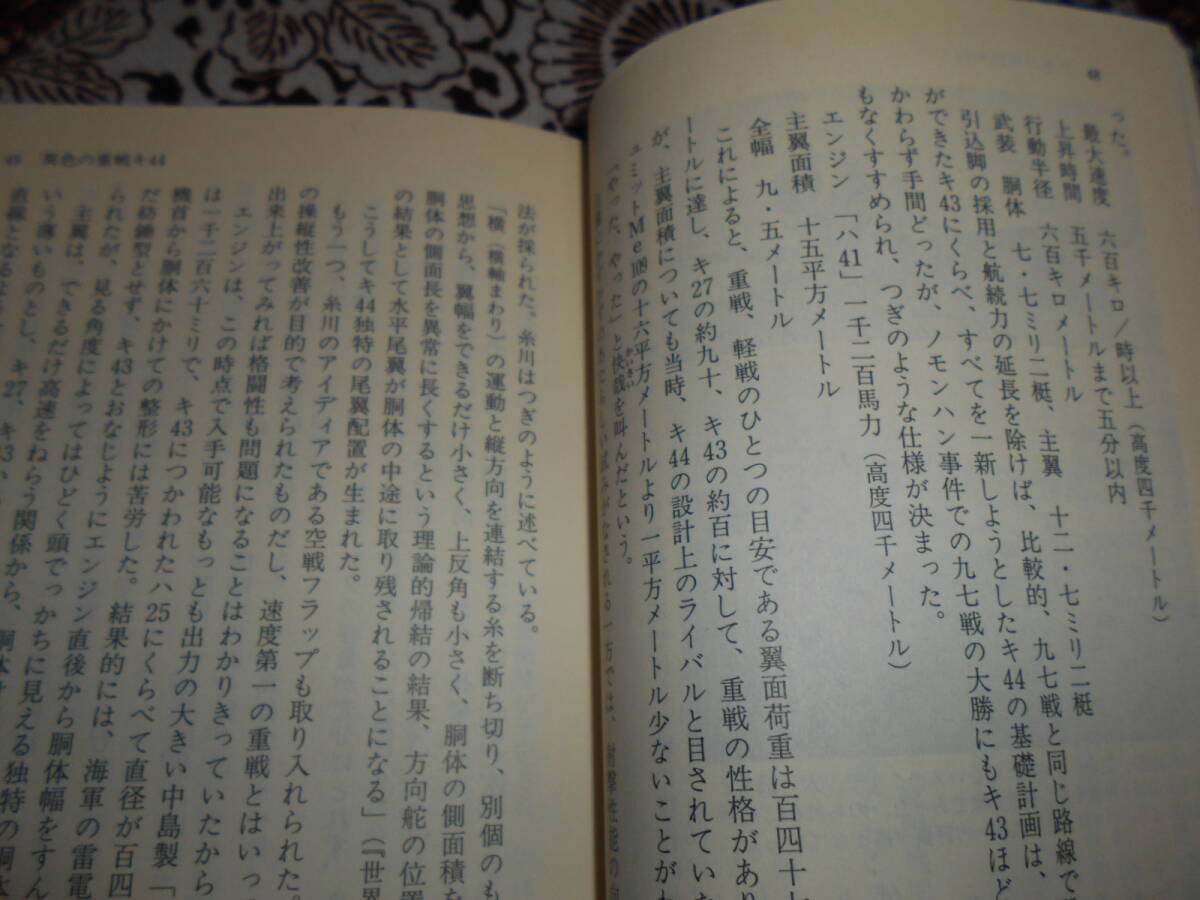 った。
最大速度　六百キロ／時以上（高度四千メートル）
上昇時間　五千メートルまで五分以内
行動半径　六百キロメートル
武装　胴体　七・七ミリ二梃、主翼　十二・七ミリ二梃
引込脚の採用と航続力の延長を除けば、比較的、九七戦と同じ路線で
ができたキ43にくらべ、すべてを一新しようとしたキ44の基礎計画は、
かわらず手間どったが、ノモンハン事件での九七戦の大勝にもキ43ほど
もなくすすめられ、つぎのような仕様が決まった。
エンジン　「ハ41」一千二百馬力（高度四千メートル）
主翼面積　十五平方メートル
全幅　九・五メートル
これによると、重戦、軽戦のひとつの目安である翼面荷重は百四十七
ートルに達し、キ27の約九十、キ43の約百に対して、重戦の性格があり
が、主翼面積についても当時、キ44の設計上のライバルと目されていた
ュミットMe109の十六平方メートルより一平方メートル少ないことがわ
「やった、やった」と快哉を叫んだという。
49　異色の重戦キ44
法が採られた。糸川はつぎのように述べている。
「横（横軸まわり）の運動と縦方向を連結する糸を断ち切り、別個のも
思想から、翼幅をできるだけ小さく、上反角も小さく、胴体の側面積を
胴体の側面長を異常に長くするという理論的帰結の結果、方向舵の位置
の結果として水平尾翼が胴体の中途に取り残されることになる」（『世界
こうしてキ44独特の尾翼配置が生まれた。
もう一つ、糸川のアイディアである空戦フラップも取り入れられた。
の操縦性改善が目的で考えられたものだし、速度第一の重戦とはいっ
出来上がってみれば格闘性も問題になることはわかりきっていたから
エンジンは、この時点で入手可能なもっとも出力の大きい中島製「
は一千二百六十ミリで、キ43につかわれたハ25にくらべて直径が百四
機首から胴体にかけての整形には苦労した。結果的には、海軍の雷電
だ紡錘型とせず、キ43とおなじようにエンジン直後から胴体幅をすん
られたが、見る角度によってはひどく頭でっかちに見える独特の胴体
主翼は、できるだけ高速をねらう関係から、
いう薄いものとし、キ27、キ43
直線となるよ